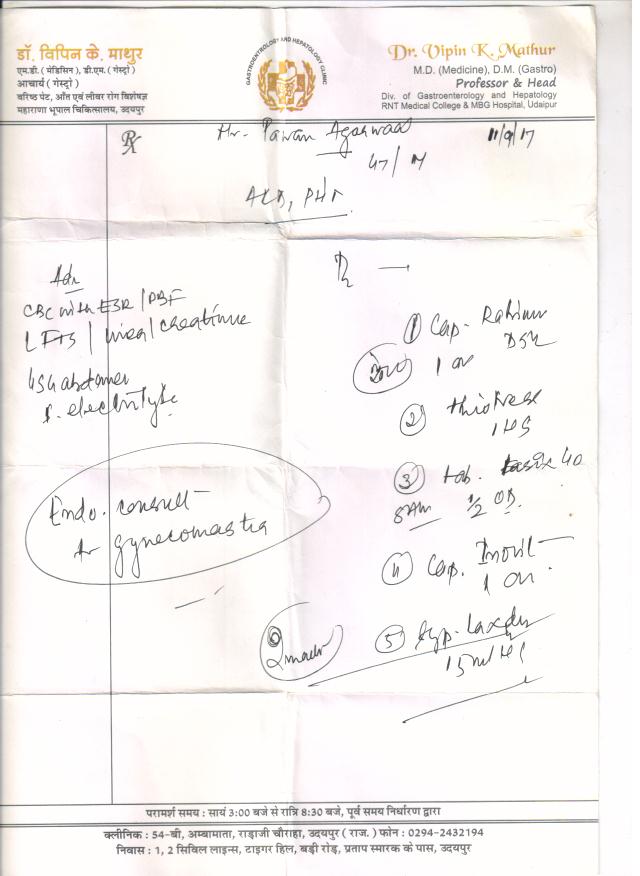 डॉ. विपिन के. माथुर
एम.डी. (मेडिसिन), डी.एम. (गेस्ट्रो)
आचार्य (गेस्ट्रो)
वरिष्ठ पेट, आँत एवं लीवर रोग विशेषज्ञ
महाराणा भूपाल चिकित्सालय, उदयपुर
GASTROENTROLOGY AND HEPATOLOGY CLINIC
Dr. Vipin K. Mathur
M.D. (Medicine), D.M. (Gastro)
Professor & Head
Div. of Gastroenterology and Hepatology
RNT Medical College & MBG Hospital, Udaipur
Rx
Mr. Pawan Agarwal
11/9/17
47/M
Adv
CBC with ESR / PBF
LFTS / Urea / creatinine
USG abdomen
S. electrolyte
Endo. consult
for gynecomastia
Rx —
① Cap.
DSR
1 OD
②
1 HS
③ tab. Lasix 40
8AM 1/2 OD
④ Cap.
1 OD
⑤ Syp.
15ml HS
परामर्श समय : सायं 3:00 बजे से रात्रि 8:30 बजे, पूर्व समय निर्धारण द्वारा
क्लीनिक : 54-बी, अम्बामाता, राड़ाजी चौराहा, उदयपुर ( राज. ) फोन : 0294-2432194
निवास : 1, 2 सिविल लाइन्स, टाइगर हिल, बड़ी रोड़, प्रताप स्मारक के पास, उदयपुर